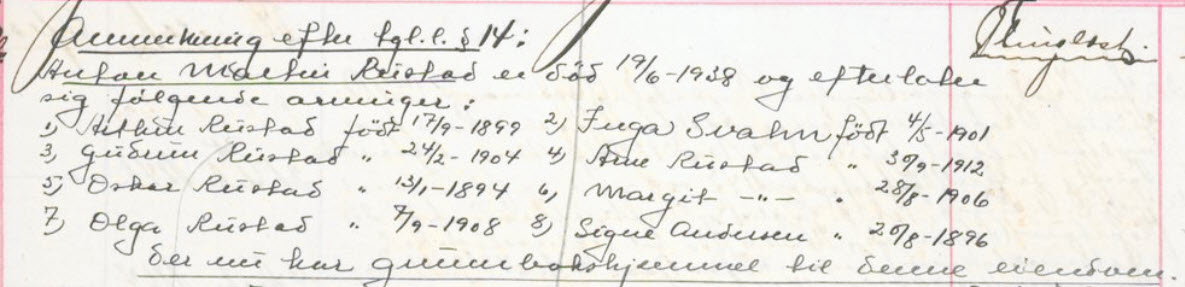 Anmerkning efter tgl.l. § 14:
Anton Martin Rustad er död 19/6-1938 og efterlater
sig følgende arvinger:
1) Arthur Rustad født 17/9-1899 2) Inga Svahn født 4/5-1901
3) Gudrun Rustad " 24/2-1904 4) Arne Rustad " 30/9-1912
5) Oskar Rustad " 13/1-1894 6) Margit -"- " 28/8-1906
7) Olga Rustad " 7/9-1908 8) Signe Andersen " 20/8-1896
der nu har grunnbokshjemmel til denne eiendom.